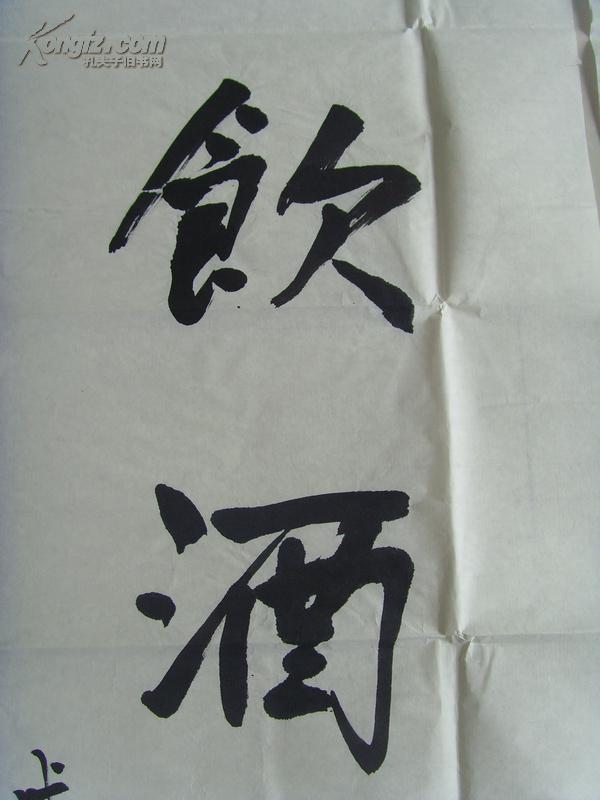 Kongfz.com
孔夫子旧书网
飲
酒